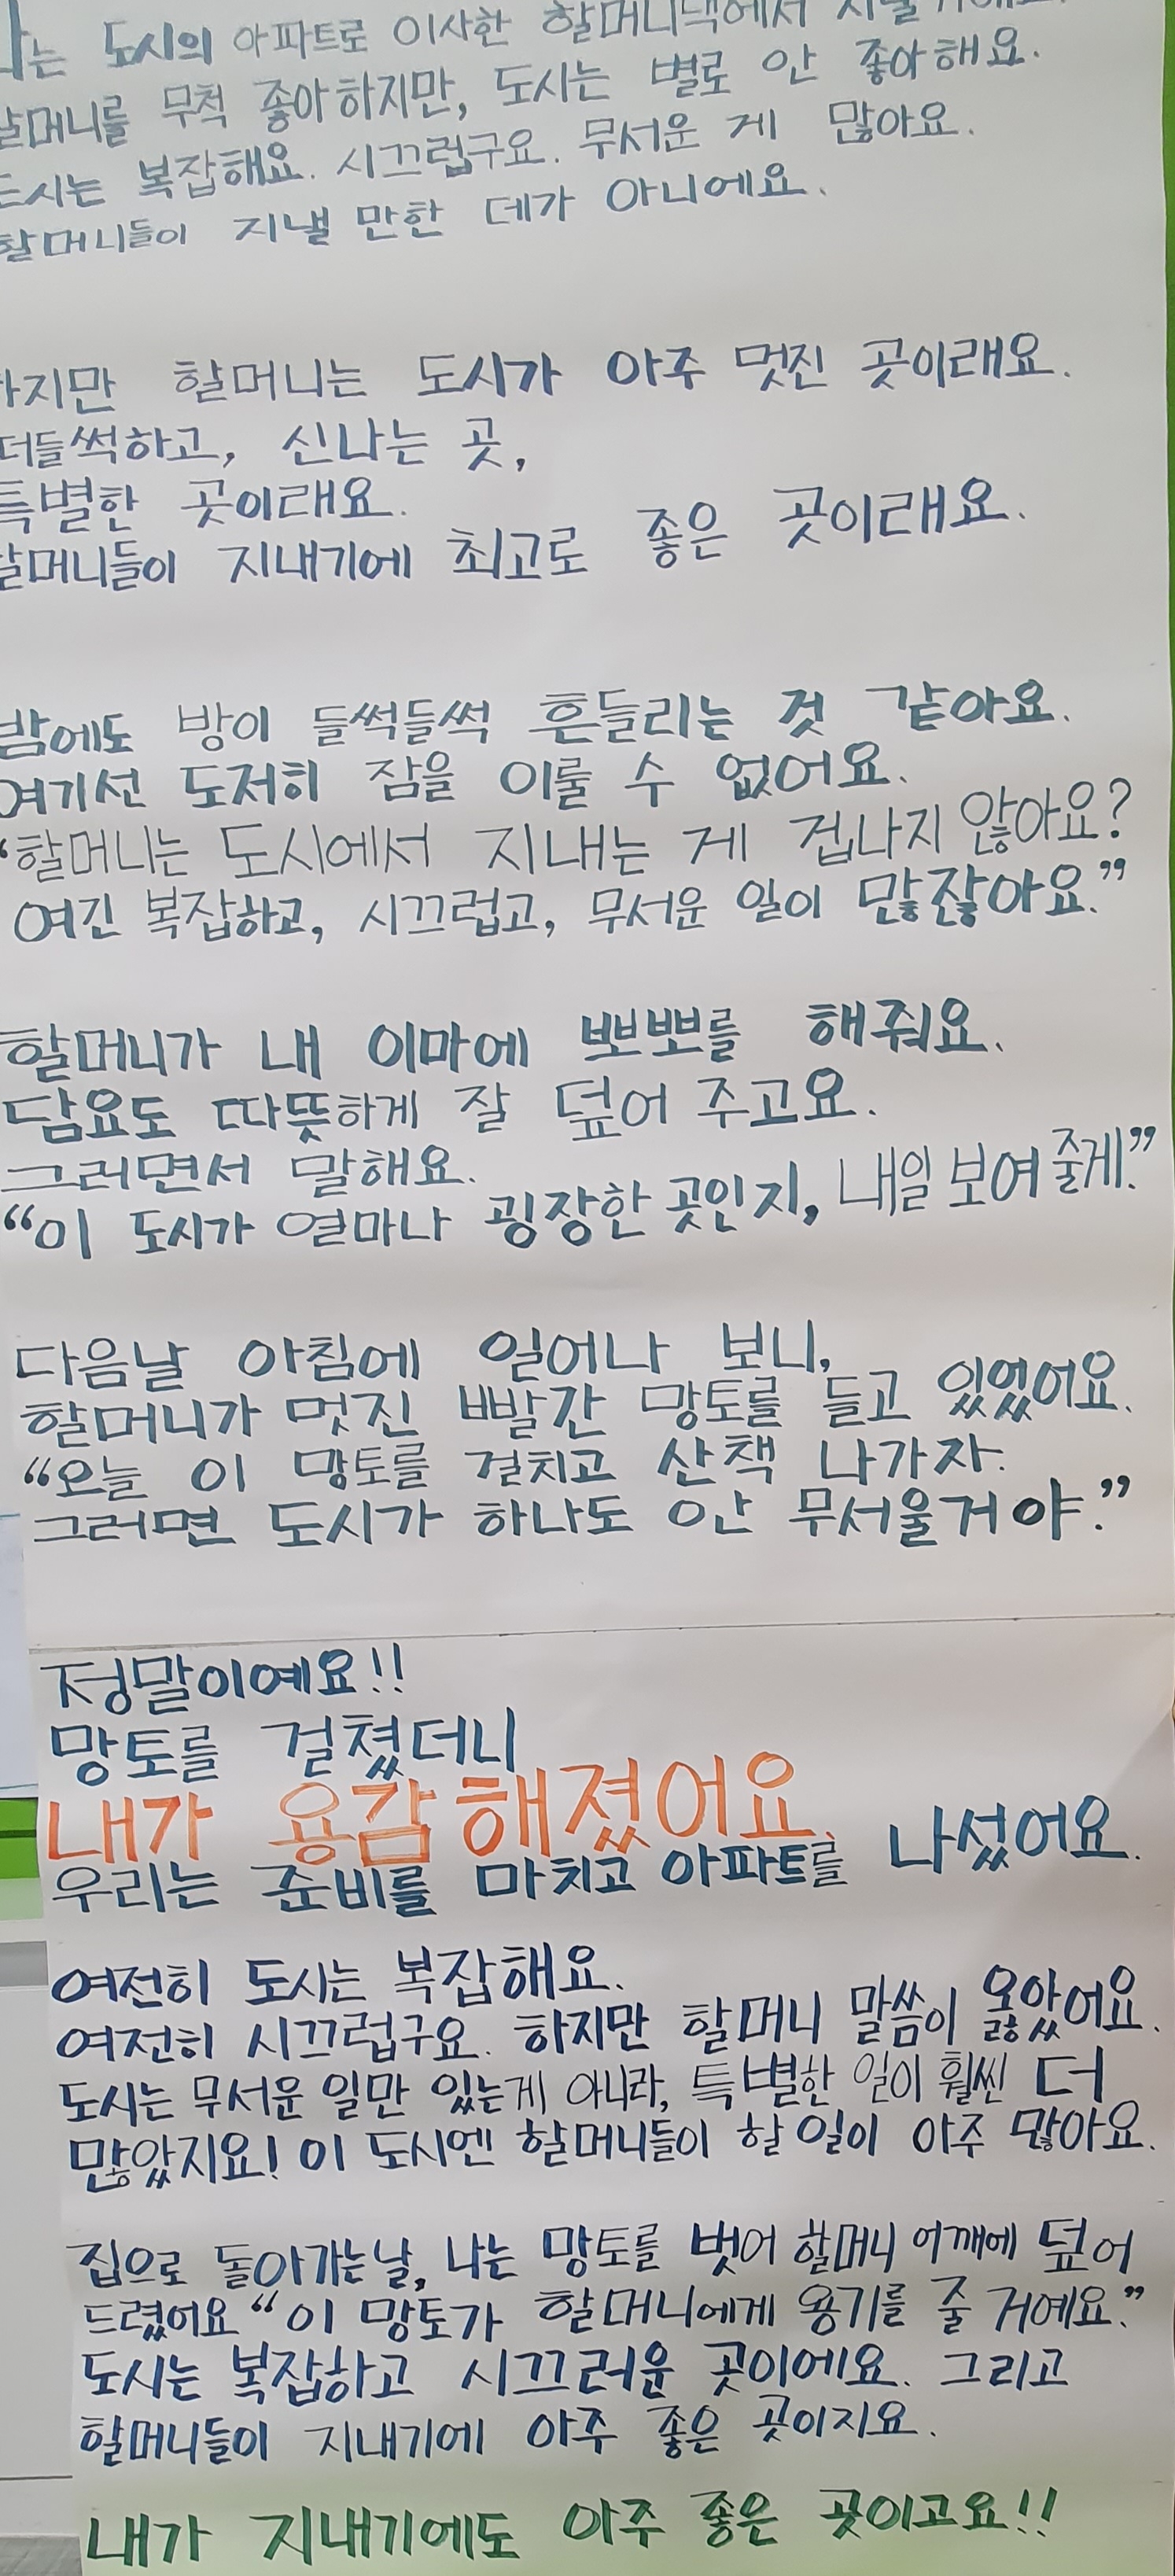 도시의 아파트로 이사한 할머니댁에서
할머니를 무척 좋아하지만, 도시는 별로 안 좋아해요.
도시는 복잡해요. 시끄럽구요. 무서운 게 많아요.
할머니들이 지낼 만한 데가 아니에요.
하지만 할머니는 도시가 아주 멋진 곳이래요.
떠들썩하고, 신나는 곳,
특별한 곳이래요.
할머니들이 지내기에 최고로 좋은 곳이래요.
밤에도 방이 들썩들썩 흔들리는 것 같아요.
여기선 도저히 잠을 이룰 수 없어요.
“할머니는 도시에서 지내는 게 겁나지 않아요?
여긴 복잡하고, 시끄럽고, 무서운 일이 많잖아요.”
할머니가 내 이마에 뽀뽀를 해줘요.
담요도 따뜻하게 잘 덮어 주고요.
그러면서 말해요.
“이 도시가 얼마나 굉장한 곳인지, 내일 보여 줄게.”
다음날 아침에 일어나 보니,
할머니가 멋진 빨간 망토를 들고 있었어요.
“오늘 이 망토를 걸치고 산책 나가자.
그러면 도시가 하나도 안 무서울거야.”
정말이예요!!
망토를 걸쳤더니
내가 용감해졌어요.
우리는 준비를 마치고 아파트를 나섰어요.
여전히 도시는 복잡해요.
여전히 시끄럽구요. 하지만 할머니 말씀이 옳았어요.
도시는 무서운 일만 있는게 아니라, 특별한 일이 훨씬 더
많았지요! 이 도시엔 할머니들이 할 일이 아주 많아요.
집으로 돌아가는날, 나는 망토를 벗어 할머니 어깨에 덮어
드렸어요 “이 망토가 할머니에게 용기를 줄 거예요.”
도시는 복잡하고 시끄러운 곳이에요. 그리고
할머니들이 지내기에 아주 좋은 곳이지요.
내가 지내기에도 아주 좋은 곳이고요!!